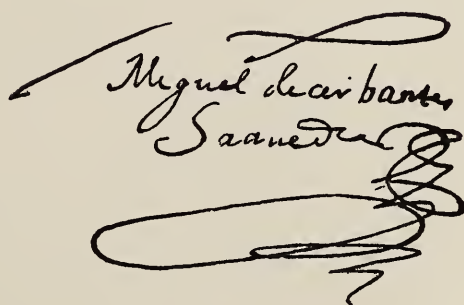 Miguel de cerbantes
Saauedra